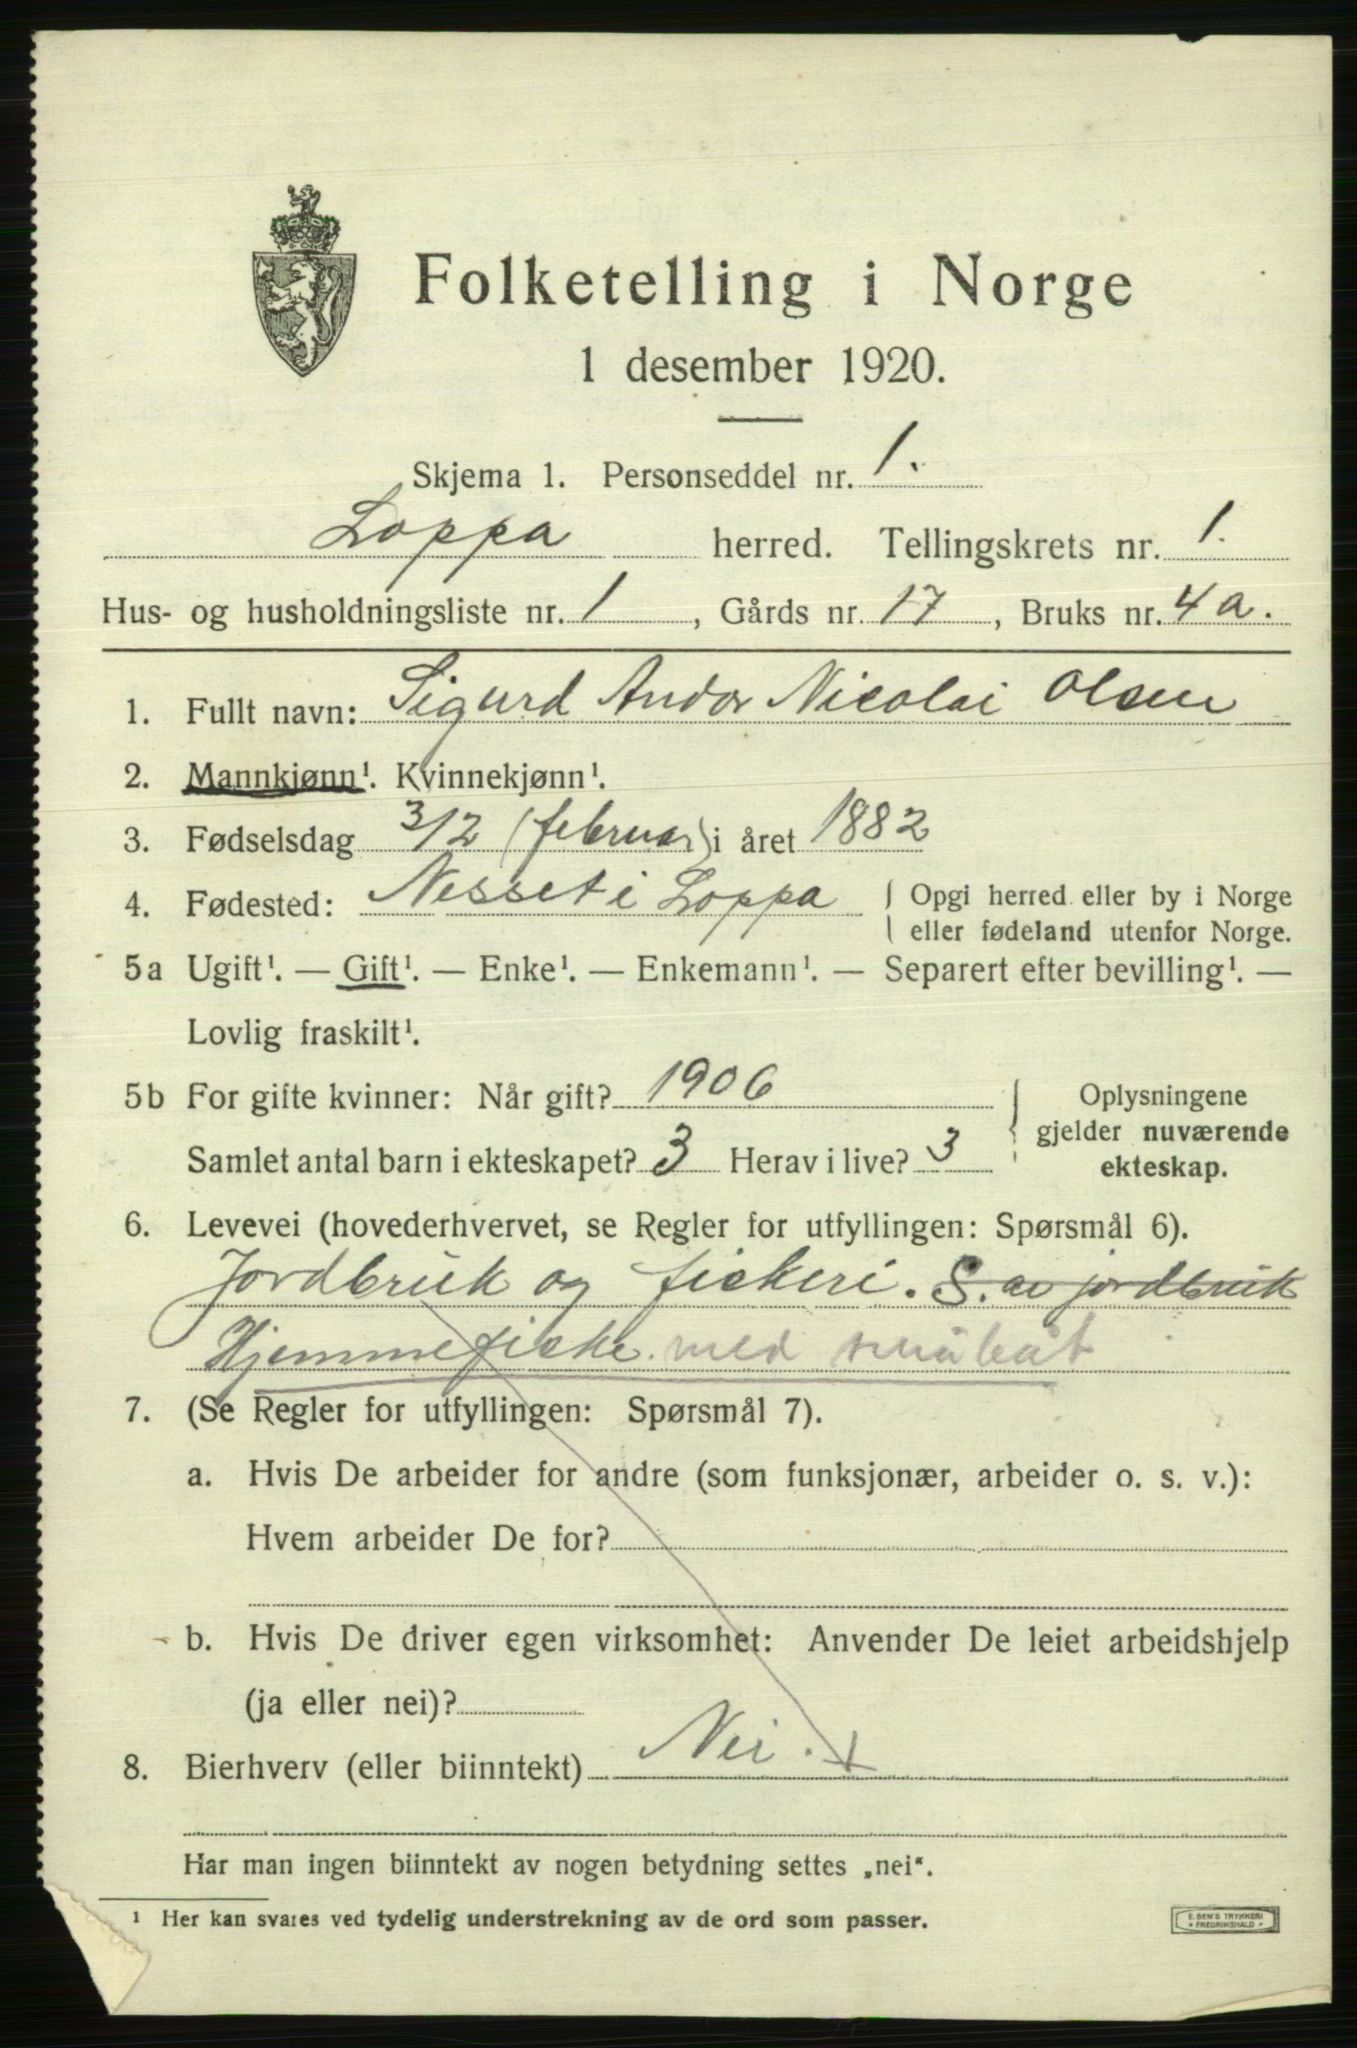 Folketelling i Norge
1 desember 1920.
Skjema 1. Personseddel nr. 1.
Loppa herred. Tellingskrets nr. 1.
Hus- og husholdningsliste nr. 1, Gårds nr. 17, Bruks nr. 4a.
1. Fullt navn: Sigurd Andor Nicolai Olsen
2. Mannkjønn¹. Kvinnekjønn¹.
3. Fødselsdag 3/2 (februar) i året 1882
4. Fødested: Nesset i Loppa { Opgi herred eller by i Norge
eller fødeland utenfor Norge.
5a Ugift¹. — Gift¹. — Enke¹. — Enkemann¹. — Separert efter bevilling¹. —
Lovlig fraskilt¹.
5b For gifte kvinner: Når gift? 1906
Samlet antal barn i ekteskapet? 3 Herav i live? 3
Oplysningene
gjelder nuværende
ekteskap.
6. Levevei (hovederhvervet, se Regler for utfyllingen: Spørsmål 6).
Jordbruk og fiskeri. S. av jordbruk
Hjemmefiske med småbåt
7. (Se Regler for utfyllingen: Spørsmål 7).
a. Hvis De arbeider for andre (som funksjonær, arbeider o. s. v.):
Hvem arbeider De for?
b. Hvis De driver egen virksomhet: Anvender De leiet arbeidshjelp
(ja eller nei)?
8. Bierhverv (eller biinntekt) Nei. +
Har man ingen biinntekt av nogen betydning settes „nei“.
¹ Her kan svares ved tydelig understrekning av de ord som passer.
E. SEM'S TRYKKERI
* FREDRIKSHALD *